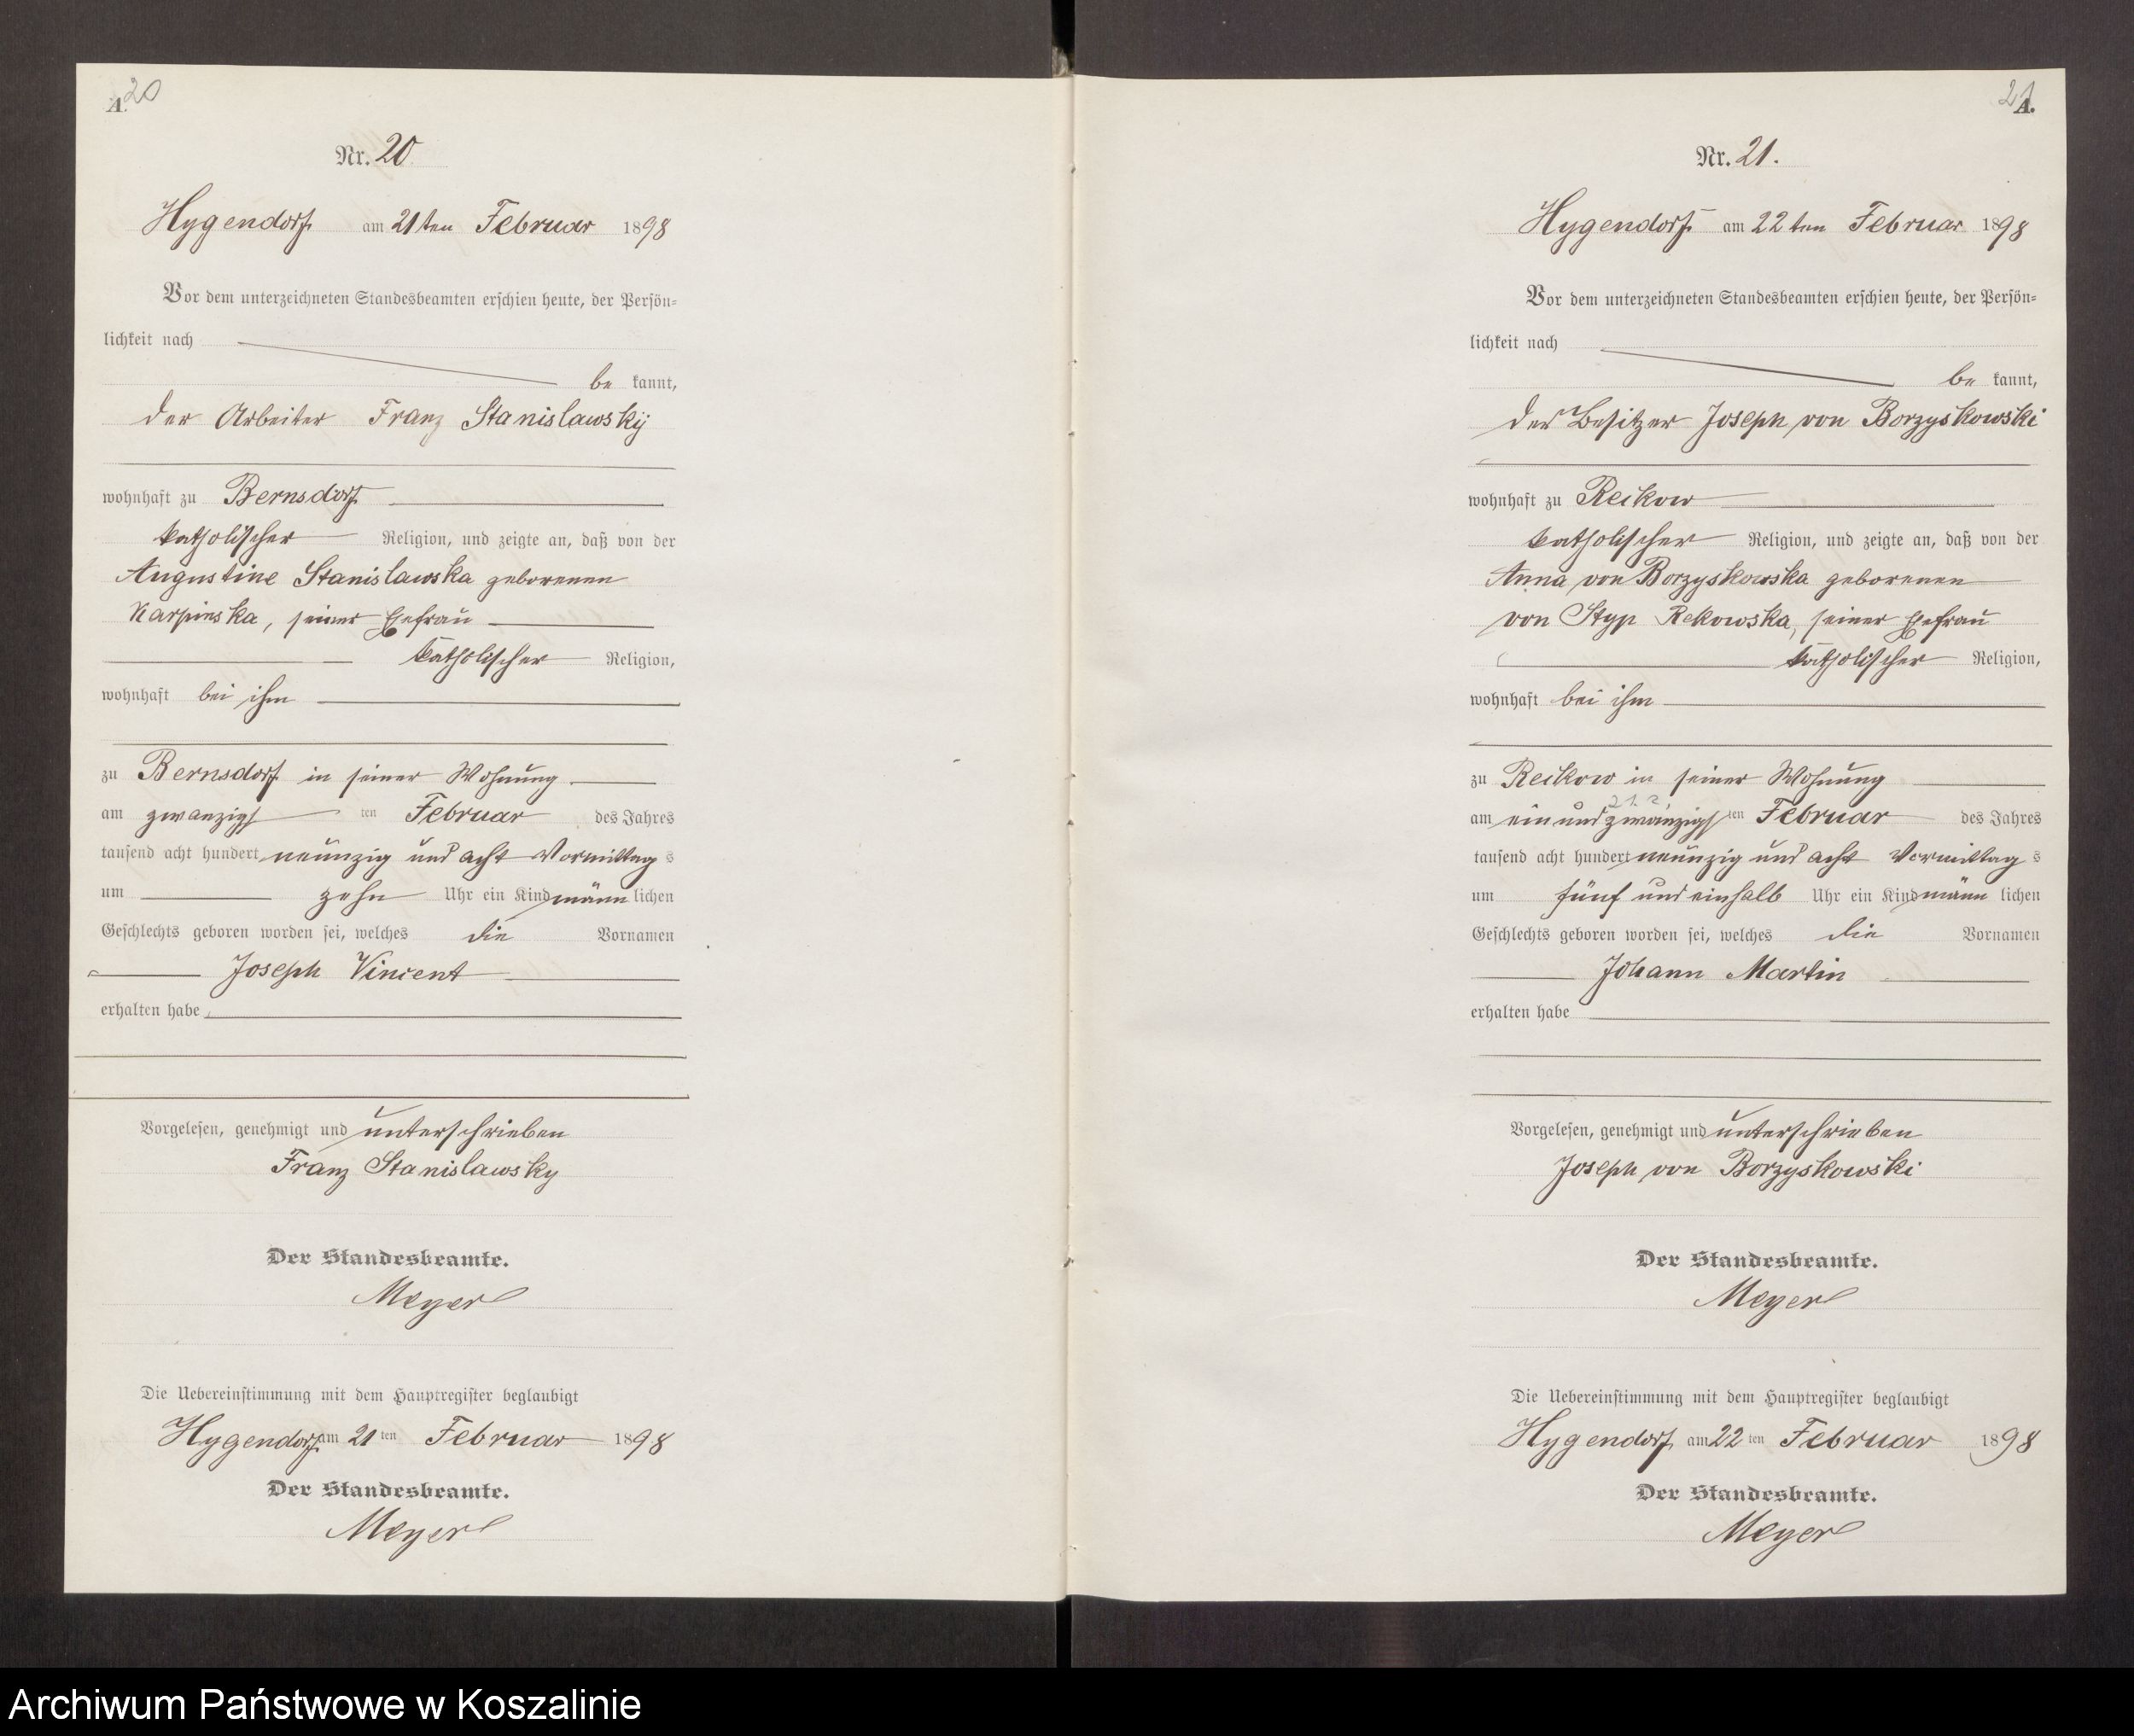 A. 20
Nr. 20
Hygendorf am 21ten Februar 1898
Vor dem unterzeichneten Standesbeamten erschien heute, der Persön=
lichkeit nach
be kannt,
der Arbeiter Franz Stanislawsky
wohnhaft zu Bernsdorf
katholischer Religion, und zeigte an, daß von der
Augustine Stanislawska geborenen
Karpinska, seiner Ehefrau
katholischer Religion,
wohnhaft bei ihm
zu Bernsdorf in seiner Wohnung
am zwanzigsten Februar des Jahres
tausend acht hundert neunzig und acht Vormittags
um zehn Uhr ein Kind männlichen
Geschlechts geboren worden sei, welches die Vornamen
Joseph Vincent
erhalten habe
Vorgelesen, genehmigt und unterschrieben
Franz Stanislawsky
Der Standesbeamte.
Meyer
Die Uebereinstimmung mit dem Hauptregister beglaubigt
Hygendorf am 21ten Februar 1898
Der Standesbeamte.
Meyer
21 A.
Nr. 21.
Hygendorf am 22ten Februar 1898
Vor dem unterzeichneten Standesbeamten erschien heute, der Persön=
lichkeit nach
be kannt,
der Besitzer Joseph von Borzyskowski
wohnhaft zu Reikow
katholischer Religion, und zeigte an, daß von der
Anna von Borzyskowska geborenen
von Styp Rekowska, seiner Ehefrau
katholischer Religion,
wohnhaft bei ihm
zu Reikow in seiner Wohnung
21.2.
am ein und zwanzigsten Februar des Jahres
tausend acht hundert neunzig und acht Vormittags
um fünf und einhalb Uhr ein Kind männlichen
Geschlechts geboren worden sei, welches die Vornamen
Johann Martin
erhalten habe
Vorgelesen, genehmigt und unterschrieben
Joseph von Borzyskowski
Der Standesbeamte.
Meyer
Die Uebereinstimmung mit dem Hauptregister beglaubigt
Hygendorf am 22ten Februar 1898
Der Standesbeamte.
Meyer
Archiwum Państwowe w Koszalinie